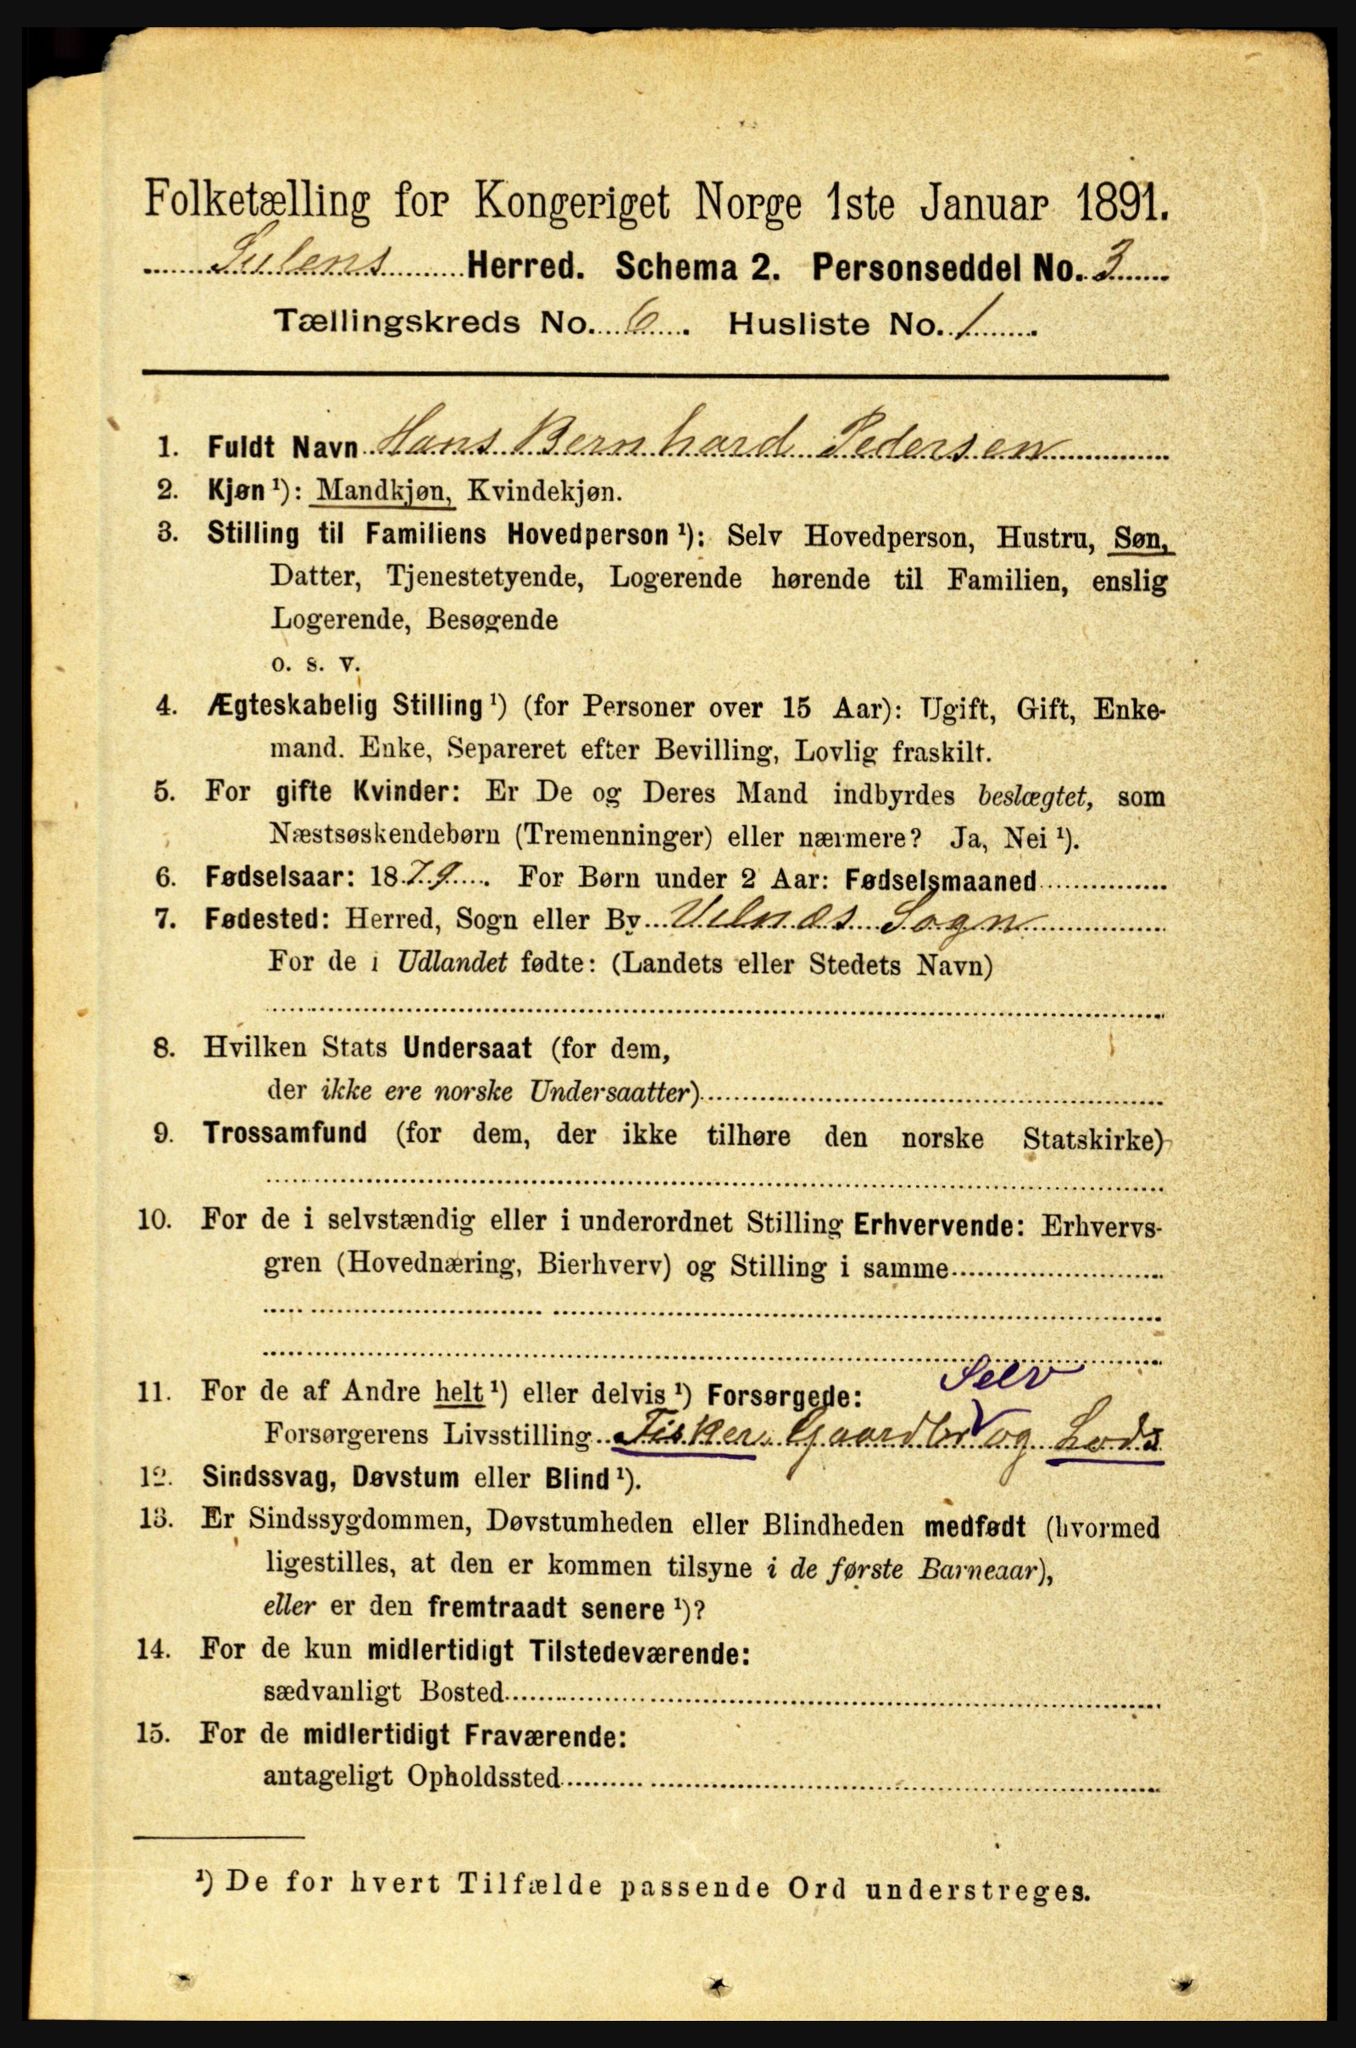 Folketælling for Kongeriget Norge 1ste Januar 1891.
Sulens Herred. Schema 2. Personseddel No. 3
Tællingskreds No. 6. Husliste No. 1.
1. Fuldt Navn Hans Bernhard Pedersen
2. Kjøn ¹): Mandkjøn, Kvindekjøn.
3. Stilling til Familiens Hovedperson ¹): Selv Hovedperson, Hustru, Søn,
Datter, Tjenestetyende, Logerende hørende til Familien, enslig
Logerende, Besøgende
o. s. v.
4. Ægteskabelig Stilling ¹) (for Personer over 15 Aar): Ugift, Gift, Enke-
mand. Enke, Separeret efter Bevilling, Lovlig fraskilt.
5. For gifte Kvinder: Er De og Deres Mand indbyrdes beslægtet, som
Næstsøskendebørn (Tremenninger) eller nærmere? Ja, Nei ¹).
6. Fødselsaar: 1879. For Børn under 2 Aar: Fødselsmaaned
7. Fødested: Herred, Sogn eller By Utnæs Sogn
For de i Udlandet fødte: (Landets eller Stedets Navn)
8. Hvilken Stats Undersaat (for dem,
der ikke ere norske Undersaatter)
9. Trossamfund (for dem, der ikke tilhøre den norske Statskirke)
10. For de i selvstændig eller i underordnet Stilling Erhvervende: Erhvervs-
gren (Hovednæring, Bierhverv) og Stilling i samme
Selv
11. For de af Andre helt ¹) eller delvis ¹) Forsørgede:
Forsørgerens Livsstilling Fisker. Gaardbr og Lods
12. Sindssvag, Døvstum eller Blind ¹).
13. Er Sindssygdommen, Døvstumheden eller Blindheden medfødt (hvormed
ligestilles, at den er kommen tilsyne i de første Barneaar),
eller er den fremtraadt senere ¹)?
14. For de kun midlertidigt Tilstedeværende:
sædvanligt Bosted
15. For de midlertidigt Fraværende:
antageligt Opholdssted
¹) De for hvert Tilfælde passende Ord understreges.